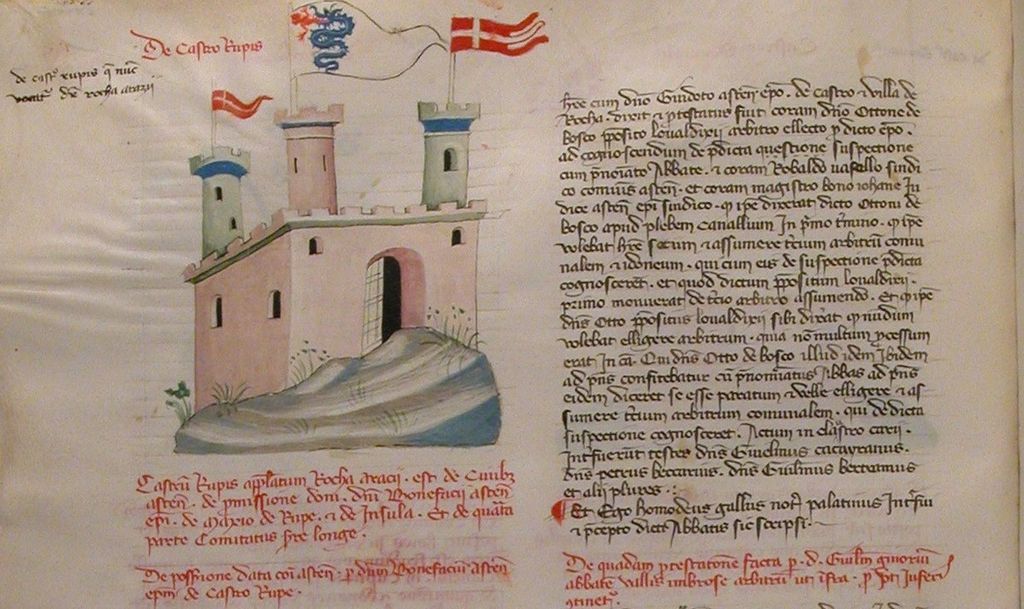 De Castro Rupis
de cast rupis q nūc
vocat' dr̄ rocha arazii
Castrū Rupis appl̄atum Rocha aracii. est de
asten̄. de pmissione domī. dnī Bonefacii asten̄
epi. de de Rupe. & de Insula. Et de quarta
parte Comitatus longe.
De possione data coī asten̄. p dnm Bonefaciū asten̄
epm de Castro Rupe.
h̄re cum dn̄o Guidoto asten̄ epo. de castro & villa de
Rocha. dixit & ptestatus fuit coram dn̄o Ottone de
bosco pposito lovaldixii arbitro ellecto p dicto epo.
ad cognoscendum de pdicta questione suspectione
cum pnoiato Abbate. & coram Robaldo vasallo sindi
co comunis asten̄. et coram magistro bono iohane Ju
dice asten̄ epi sindico. q ipe dixerat dicto Ottoni de
bosco apud plebem canallium In pmo tmino. q ipe
volebat h̄re & assumere tcium arbitrū comu
nalem & idoneum. qui cum eis de suspectione pdicta
cognosceret. et quod dictum ppositum lovaldixii.
primo monuerat de tcio arbitro assumendo. Et q ipe
dn̄s Otto ppositus lovaldixii sibi dixat q nundum
volebat elligere arbitrum. quia nō multum pcessum
erat In cā. Qui dn̄s Otto de bosco illud idem Ibidem
ad pn̄s confitebatur cū pnomiatus Abbas ad pn̄s
eidem diceret se esse paratum & velle elligere & as-
sumere tcium arbitrum comunalem. qui de dicta
suspectione cognosceret. Actum in claustro carii.
Intfuerunt testes dn̄s Guielmus cacayranus.
dn̄s petrus beccarius. dn̄s Guilmus bertramus
et alij plures.
Et Ego homodeus gallus not' palatinus Intfui
& pcepto dicti Abbatis sic scripsi.
De quadam ptestatione facta p. d. Guilm̄
abbate vallis umbrose arbitrū ut īfra. p Ipī
ɔtinet'.